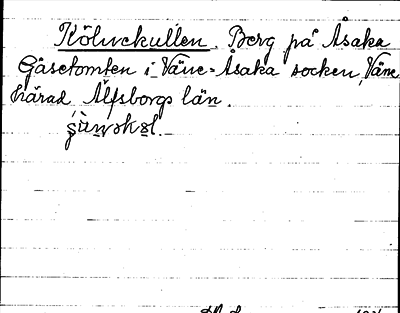 Kölnekullen. Berg på Åsaka
Gåsetomten i Väne-Åsaka socken, Väne
härad Älfsborgs län.